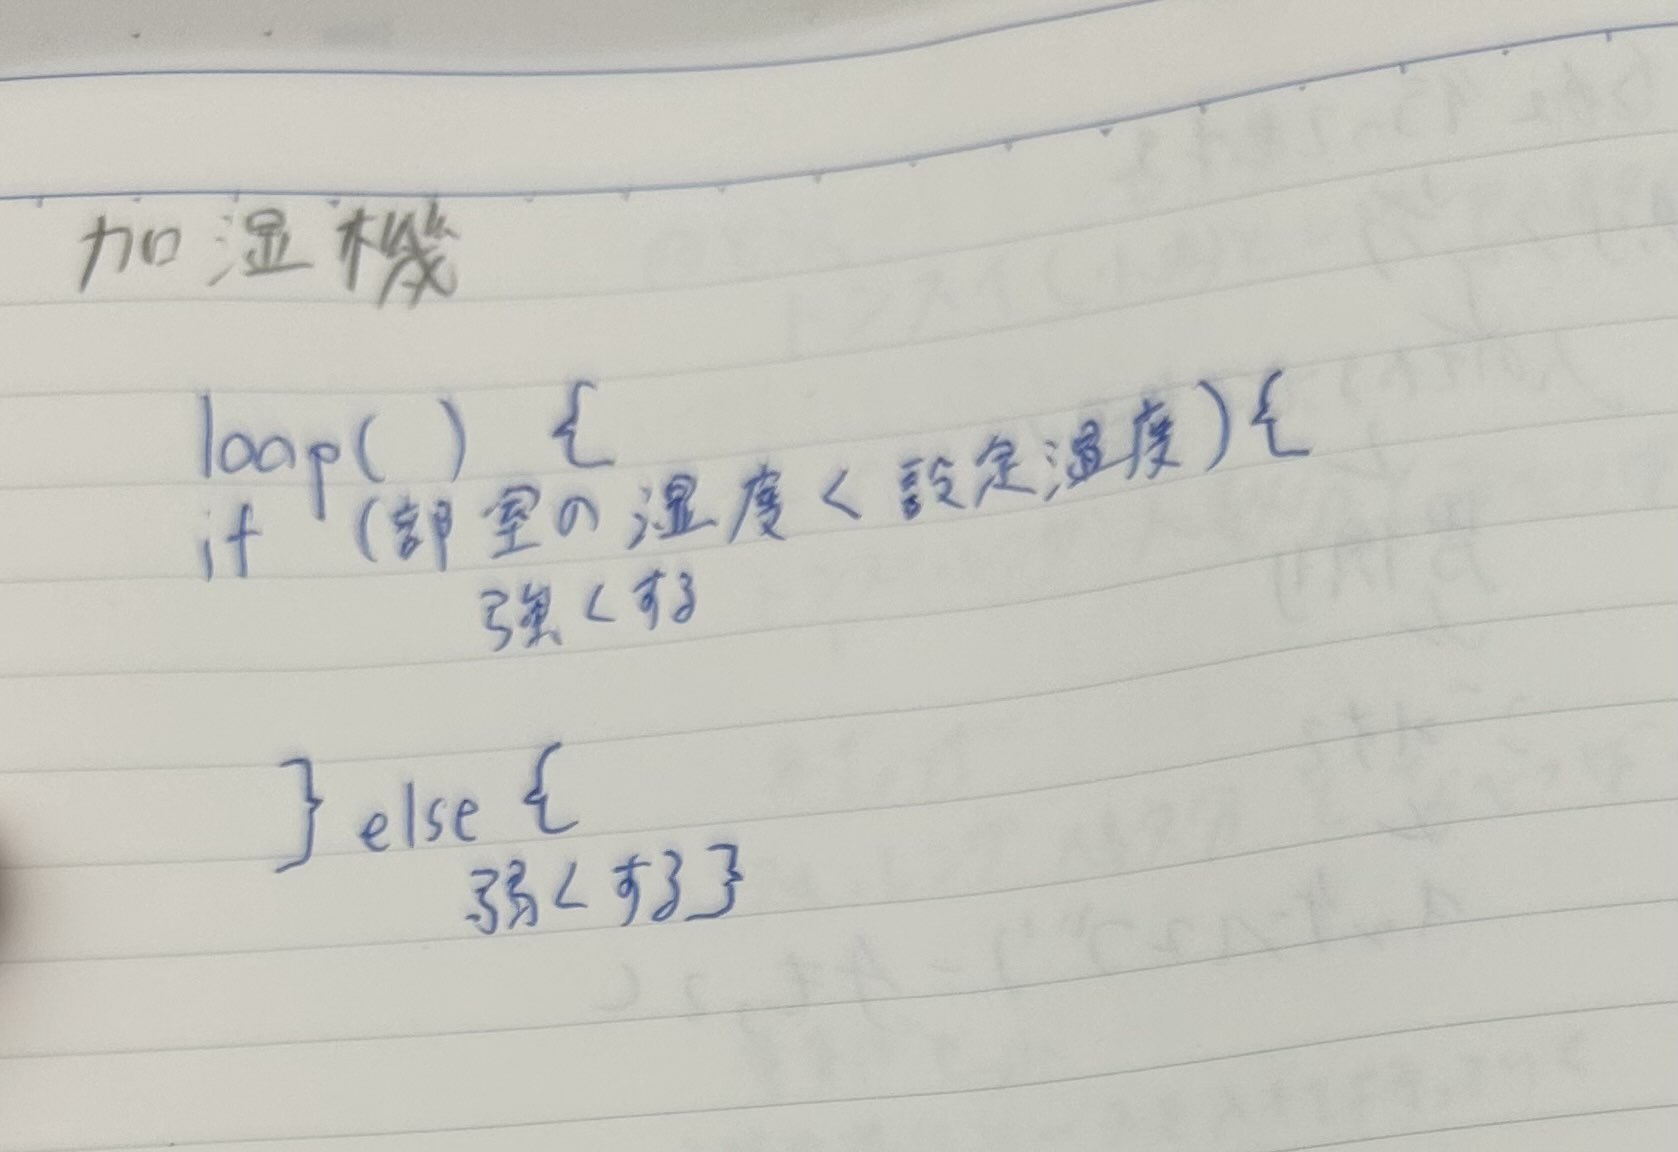 加湿機
loop( ) {
if (部室の湿度 < 設定湿度){
強くする
} else {
弱くする}